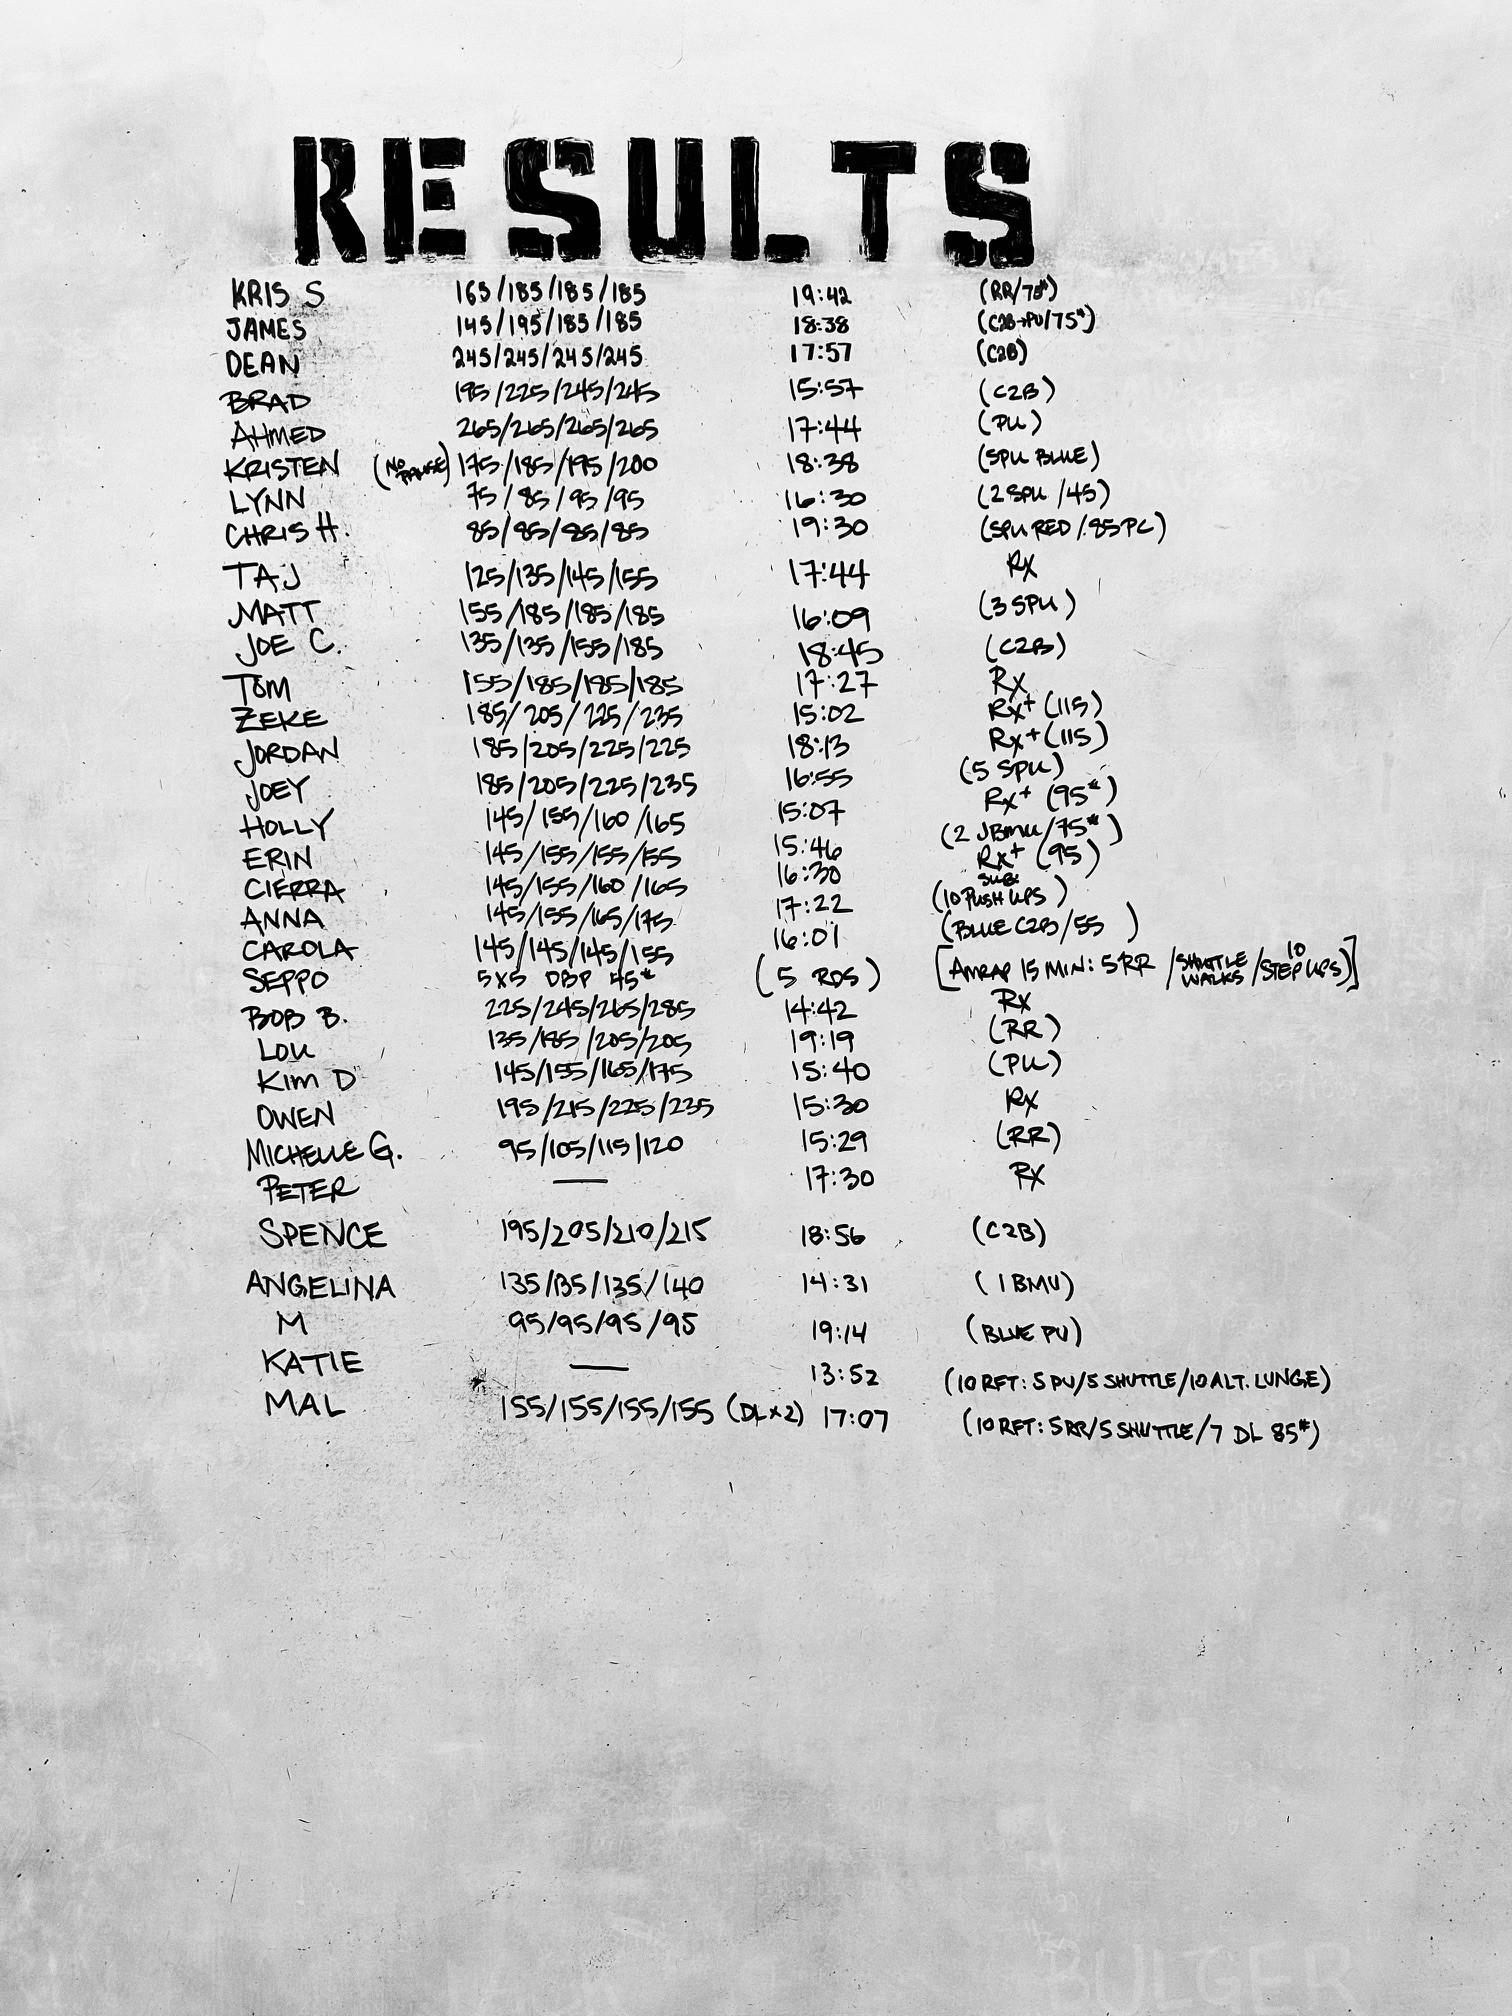 RESULTS
KRIS S 165/185/185/185 19:42 (RR/75#)
JAMES 145/195/185/185 18:38 (C2B→PU/75#)
DEAN 245/245/245/245 17:57 (C2B)
BRAD 195/225/245/245 15:57 (C2B)
AHMED 265/265/265/265 17:44 (PU)
KRISTEN (NO PAUSE) 175/185/195/200 18:38 (SPU BLUE)
LYNN 75/85/95/95 16:30 (2 SPU/45)
CHRIS H. 85/85/85/85 19:30 (SPU RED/85 PC)
TAJ 125/135/145/155 17:44 Rx
MATT 155/185/185/185 16:09 (3 SPU)
JOE C. 135/135/155/185 18:45 (C2B)
TOM 155/185/185/185 17:27 Rx
ZEKE 185/205/225/235 15:02 Rx+ (115)
JORDAN 185/205/225/225 18:13 Rx+ (115)
JOEY 185/205/225/235 16:55 (5 SPU)
HOLLY 145/155/160/165 15:07 Rx+ (95#)
ERIN 145/155/155/155 15:46 (2 JBMU/75#)
CIERRA 145/155/160/165 16:30 Rx+ (95)
ANNA 145/155/165/175 17:22 (SUB: 10 PUSH UPS)
CAROLA 145/145/145/155 16:01 (BLUE C2B/55)
SEPPO 5X5 DBP 45# (5 RDS) [AMRAP 15 MIN: 5 RR/SHUTTLE WALKS/10 STEP UPS)]
BOB B. 225/245/265/285 14:42 Rx
LOU 135/185/205/205 19:19 (RR)
KIM D 145/155/165/175 15:40 (PU)
OWEN 195/215/225/235 15:30 Rx
MICHELLE G. 95/105/115/120 15:29 (RR)
PETER — 17:30 Rx
SPENCE 195/205/210/215 18:56 (C2B)
ANGELINA 135/135/135/140 14:31 (1 BMU)
M 95/95/95/95 19:14 (BLUE PU)
KATIE — 13:52 (10 RFT: 5 PU/5 SHUTTLE/10 ALT. LUNGE)
MAL 155/155/155/155 (DL x2) 17:07 (10 RFT: 5 RR/5 SHUTTLE/7 DL 85#)
BULGER